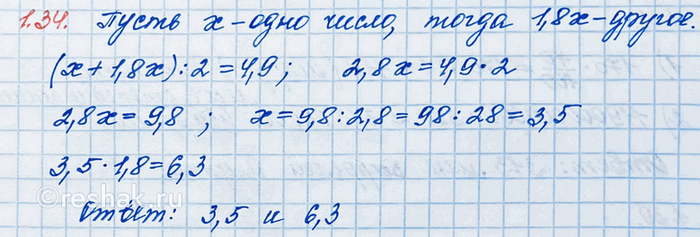 1.34. Пусть x - одно число, тогда 1,8x - другое.
(x + 1,8x) : 2 = 4,9 ; 2,8x = 4,9 · 2
2,8x = 9,8 ; x = 9,8 : 2,8 = 98 : 28 = 3,5
3,5 · 1,8 = 6,3
Ответ: 3,5 и 6,3
Reshak.ru